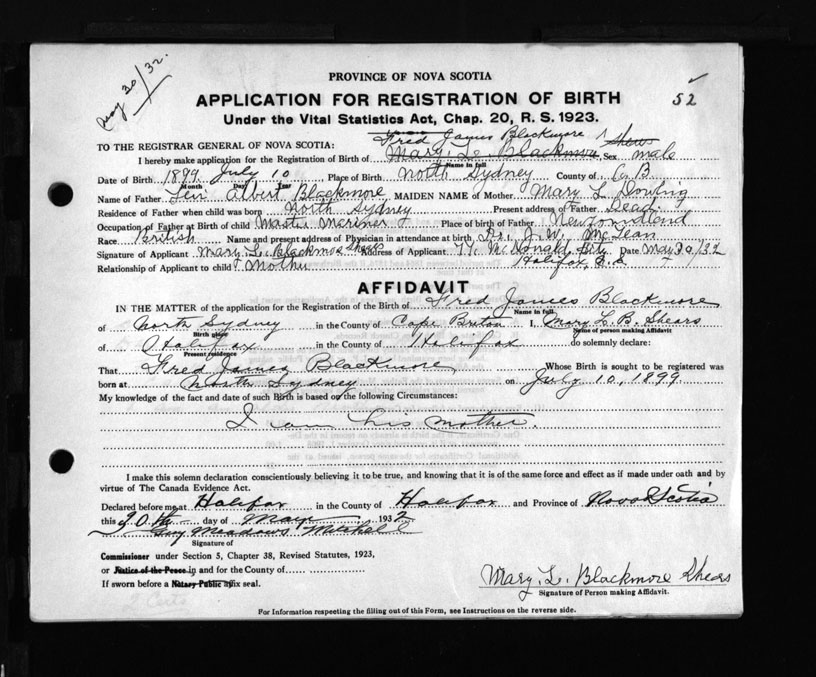 May 30/32.
PROVINCE OF NOVA SCOTIA
52
APPLICATION FOR REGISTRATION OF BIRTH
Under the Vital Statistics Act, Chap. 20, R. S. 1923.
Fred James Blackmore
TO THE REGISTRAR GENERAL OF NOVA SCOTIA:
I hereby make application for the Registration of Birth of Mary L. Blackmore Shears Sex male
Name in full
Date of Birth 1899 July 10 Place of Birth North Sydney County of C. B.
Month Day Year
Name of Father Levi Albert Blackmore MAIDEN NAME of Mother Mary L. Dowling
Residence of Father when child was born North Sydney Present address of Father Dead
Occupation of Father at Birth of child Master Mariner Place of birth of Father Newfoundland
Race British Name and present address of Physician in attendance at birth Dr. J. W. McLean
Signature of Applicant Mary L. Blackmore Shears Address of Applicant McDonald Date May 30/32
Relationship of Applicant to child Mother Halifax,
AFFIDAVIT
IN THE MATTER of the application for the Registration of the Birth of Fred James Blackmore
Name in full
of North Sydney in the County of Cape Breton I, Mary L. B. Shears
Birth place Name of person making Affidavit
of Halifax in the County of Halifax do solemnly declare:
Present residence
That Fred James Blackmore Whose Birth is sought to be registered was
born at North Sydney on July 10, 1899
My knowledge of the fact and date of such Birth is based on the following Circumstances:
I am his mother.
I make this solemn declaration conscientiously believing it to be true, and knowing that it is of the same force and effect as if made under oath and by
virtue of The Canada Evidence Act.
Declared before me at Halifax in the County of Halifax and Province of Nova Scotia
this 30th day of May 1932
Guy Meadows Mitchell
Signature of
Commissioner under Section 5, Chapter 38, Revised Statutes, 1923,
or Justice of the Peace in and for the County of
If sworn before a Notary Public affix seal.
Mary L. Blackmore Shears
Signature of Person making Affidavit.
For Information respecting the filling out of this Form, see Instructions on the reverse side.